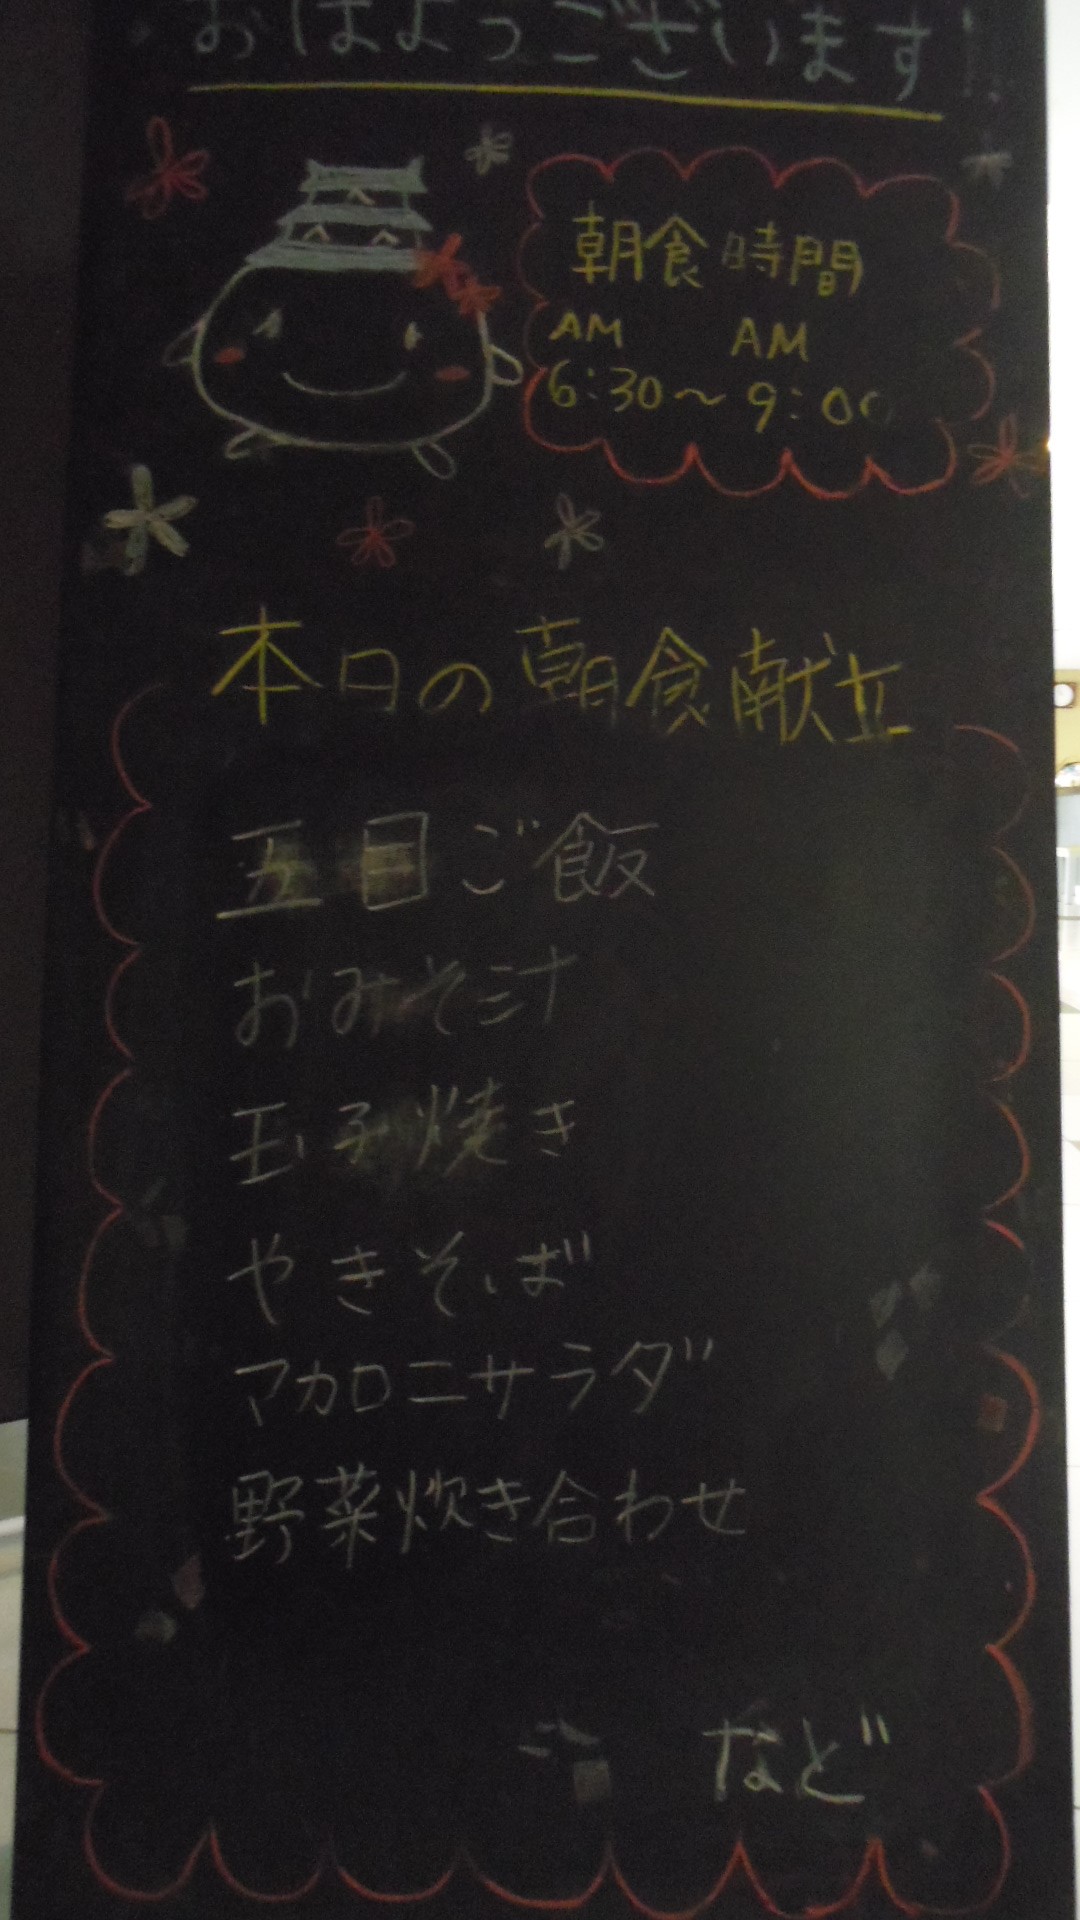 おはようございます!!
朝食時間
AM AM
6:30～9:00
本日の朝食献立
五目ご飯
おみそ汁
玉子焼き
やきそば
マカロニサラダ
野菜炊き合わせ
など